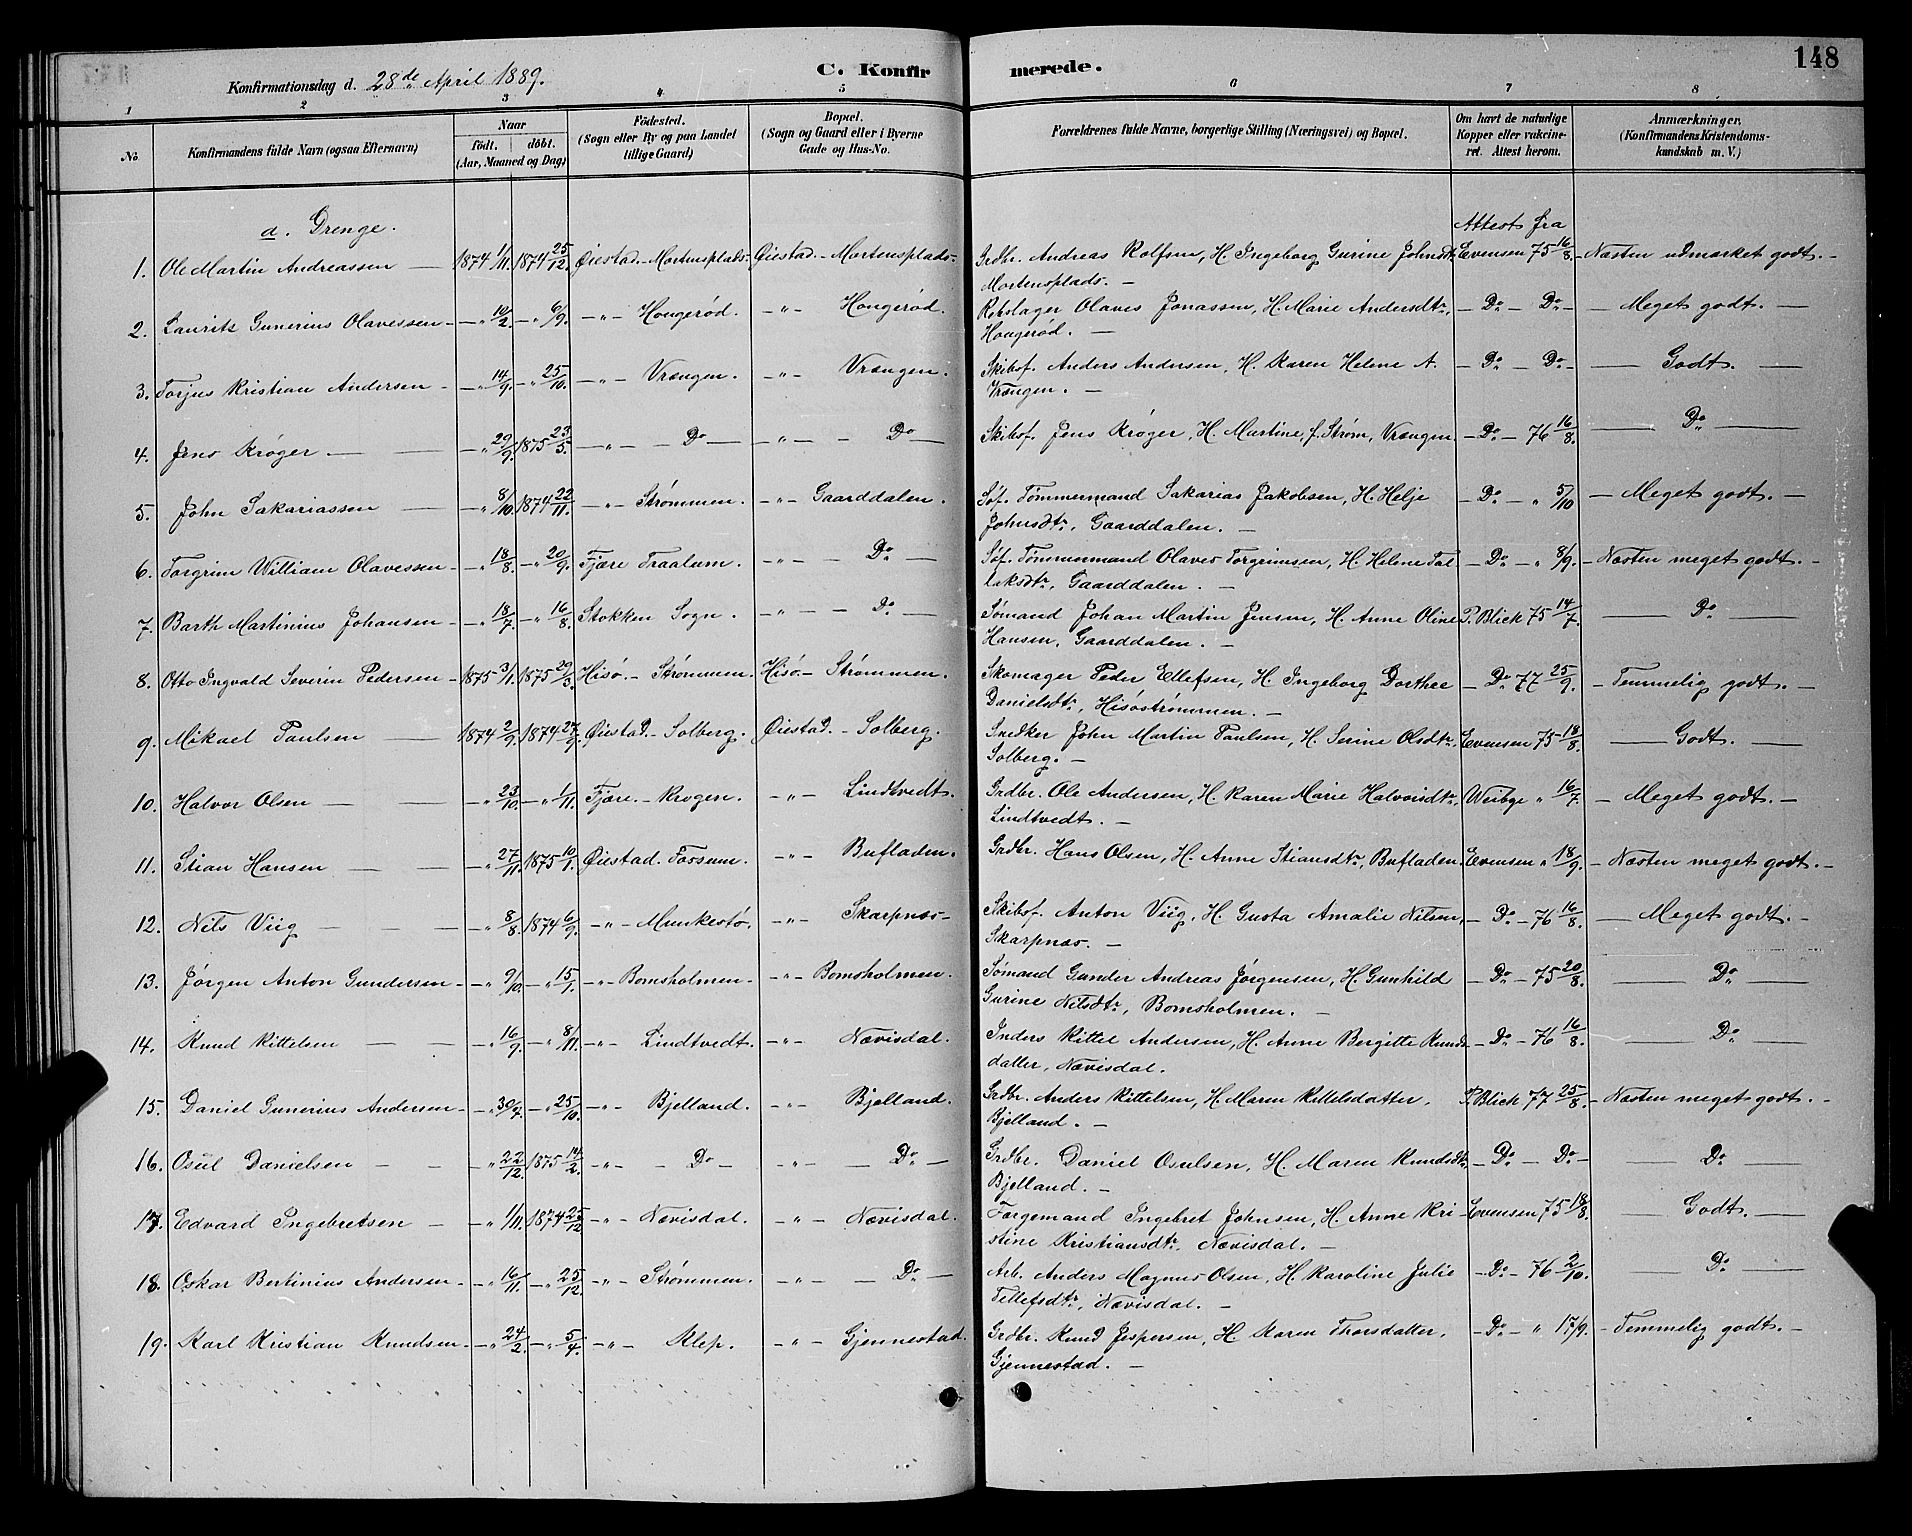 148
Konfirmationsdag d. 28de April 1889.
C. Konfirmerede.
1 2 3 4 5 6 7 8
No. | Konfirmandens fulde Navn (ogsaa Efternavn) | Naar födt. döbt. (Aar, Maaned og Dag) | Födested. (Sogn eller By og paa Landet tillige Gaard) | Bopæl. (Sogn og Gaard eller i Byerne Gade og Hus-No. | Forældrenes fulde Navne, borgerlige Stilling (Næringsvei) og Bopæl. | Om havt de naturlige Kopper eller vakcineret. Attest herom. | Anmærkninger, (Konfirmandens Kristendomskundskab m. V.)
a. Drenge. Attest fra
1. Ole Martin Andreassen — 1874 1/11. 1874 25/12. Øiestad - Mortensplads. Øiestad - Mortensplads. Grdbr. Andreas Rolfsen, H. Ingeborg Gurine Johnsdt. Evensen 75 16/8. - Næsten udmærket godt. -
Mortensplads. -
2. Laurits Gunerius Olavessen - „ 10/2. - „ 6/9. - „ - Hougerød. - „ - Hougerød. Rebslager Olaves Jonassen, H. Marie Andersdtr., - Do - Do - - Meget godt. -
Hougerød. -
3. Torjus Kristian Andersen - „ 14/9. - „ 25/10. - „ - Vrængen. - „ - Vrængen. Skibsf. Anders Andersen, H. Karen Helene A. - Do - Do - - Godt. -
Vrængen. -
4. Jens Krøger — „ 29/9. 1875 23/5. - „ - Do - - „ - Do - Skibsf. Jens Krøger, H. Martine, f. Strøm, Vrængen - Do - 76 16/8. - Do -
5. John Sakariassen — „ 8/10. 1874 22/11. - „ - Strømmen. - „ - Gaarddalen. Søf. Tømmermand Sakarias Jakobsen, H. Helje - Do - „ 5/10 - Meget godt. -
Johnsdtr., Gaarddalen. -
6. Torgrim William Olavessen - „ 18/8. - „ 20/9. Fjære Traalum. - „ - Do - Søf. Tømmermand Olaves Torgrimsen, H. Helene Tal- - Do - „ 8/9. - Næsten meget godt. -
laksdtr., Gaarddalen. -
7. Barth Martinius Johansen - „ 18/7. - „ 16/8. Stokken Sogn. - „ - Do - Sømand Johan Martin Jensen, H. Anne Oline P. Blick 75 14/7. - Do -
Hansen, Gaarddalen. -
8. Otto Ingvald Severin Pedersen - 1875 3/1. 1875 29/3. Hisø. - Strømmen. Hisø - Strømmen. Skomager Peder Ellefsen, H. Ingeborg Dorthee - Do 77 25/9. - Temmelig godt. -
Danielsdtr., Hisøstrømmen. -
9. Mikael Paulsen — 1874 2/9. 1874 27/9. Øiestad. - Solberg. Øiestad. - Solberg. Snedker John Martin Paulsen, H. Serine Olsdtr. Evensen 75 18/8. - Godt. -
Solberg. -
10. Halvor Olsen — „ 23/10. - „ 1/11. Fjære. - Krogen. - „ - Lindtvedt. Grdbr. Ole Andersen, H. Karen Marie Halvorsdtr., Weibye „ 16/7. - Meget godt. -
Lindtvedt. -
11. Stian Hansen — „ 27/11. 1875 10/1. Øiestad. Fossum. - „ - Bufladen. Grdbr. Hans Olsen, H. Anne Stiansdtr., Bufladen. Evensen „ 18/9. - Næsten meget godt. -
12. Nils Viig — „ 8/8. 1874 6/9. - „ - Munkestø. - „ - Skarpnæs- Skibsf. Anton Viig, H. Gusta Amalie Nilsen, - Do - 76 16/8. - Meget godt. -
Skarpnæs. -
13. Jørgen Anton Gundersen - „ 9/10. - „ 15/1. - „ - Bomsholmen - - „ - Bomsholmen. Sømand Gunder Andreas Jørgensen, H. Gunhild - Do - 75 20/8. - Do -
Gurine Nilsdtr., Bomsholmen. -
14. Knud Kittelsen — „ 16/9. - „ 8/11. - „ - Lindtvedt. - „ - Nævisdal. Inders Kittel Andersen, H. Anne Bergitte Knuds- - Do - 76 16/8. - Do -
datter, Nævisdal.
15. Daniel Gunerius Andersen - „ 30/7. - „ 25/10. - „ - Bjelland. - „ - Bjelland. Grdbr. Anders Kittelsen, H. Maren Kittelsdatter, P. Blick 77 25/8. - Næsten meget godt. -
Bjelland. -
16. Osul Danielsen — „ 22/12. 1875 14/2. - „ - Do - - „ - Do - Grdbr. Daniel Osulsen, H. Maren Knudsdtr, - Do - Do - - Do -
Bjelland. -
17. Edvard Ingebretsen - „ 1/11. 1874 25/12. - „ - Nævisdal. - „ - Nævisdal. Færgemand Ingebret Johnsen, H. Anne Kri- Evensen 75 18/8. - Godt. -
stine Kristiansdtr. Nævisdal. -
18. Oskar Bertinius Andersen - „ 16/11. - „ 25/12. - „ - Strømmen. - „ - Do - Arb. Anders Magnus Olsen, H. Karoline Julie - Do - 76 2/10. - Do -
Tellefsdtr., Nævisdal. -
19. Karl Kristian Knudsen - „ 24/2. - „ 5/4. - „ - Klep. - „ - Gjennestad. Grdbr. Knud Jespersen, H. Karen Thorsdatter, - Do - „ 17/9. - Temmelig godt. -
Gjennestad. -